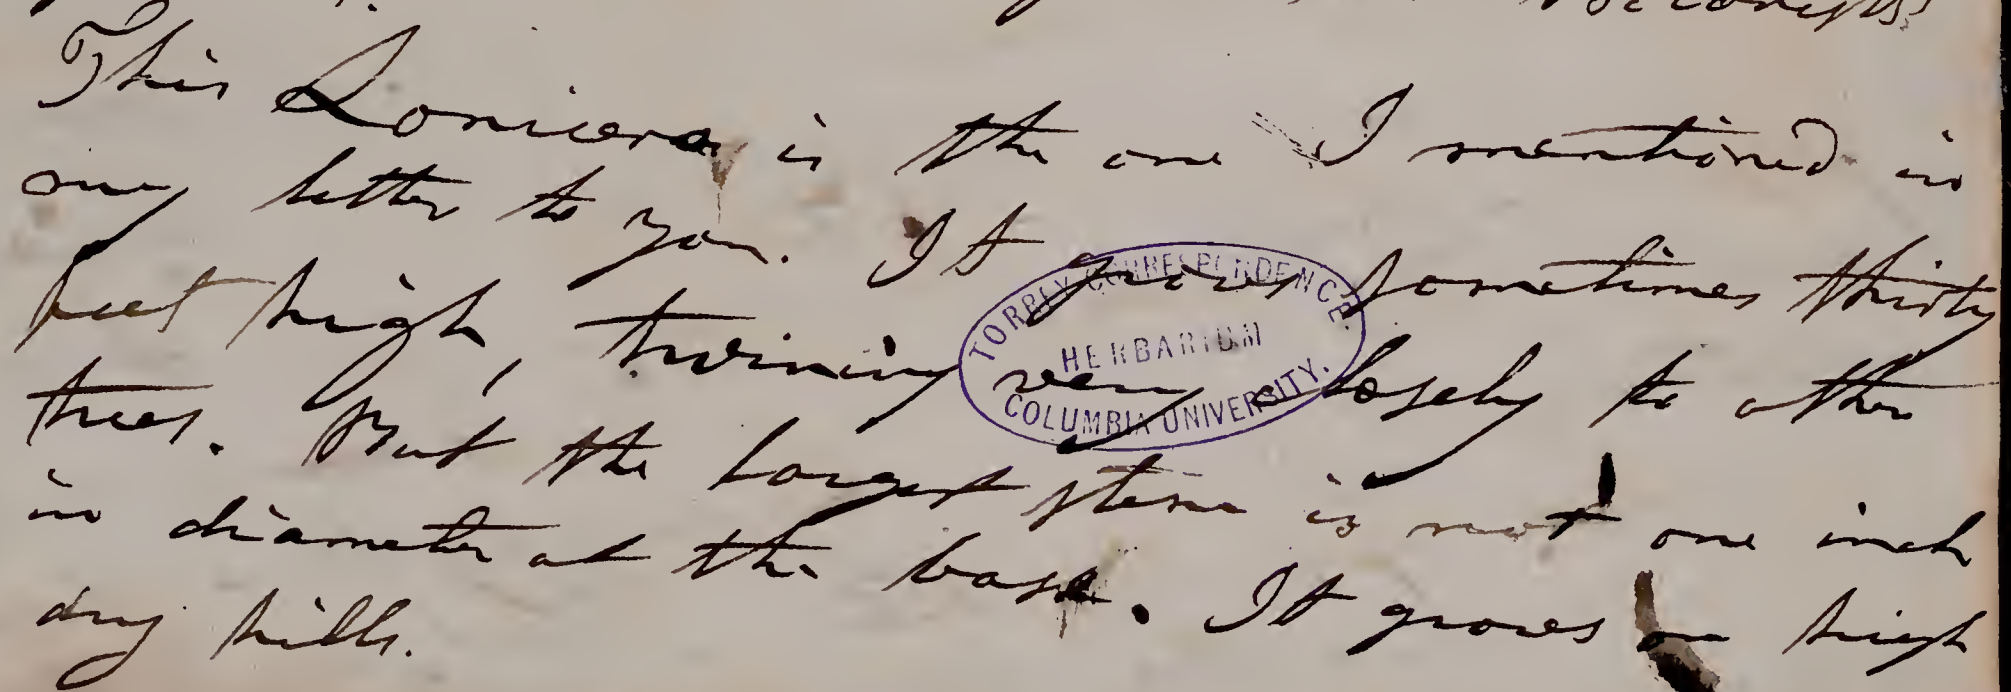 This Lonicera is the one I mentioned in
my letter to you. It grows sometimes thirty
feet high, twining very closely to other
trees. But the largest stem is not one inch
in diameter at the base. It grows on high
dry hills.
TORREY CORRESPONDENCE.
HERBARIUM
COLUMBIA UNIVERSITY.